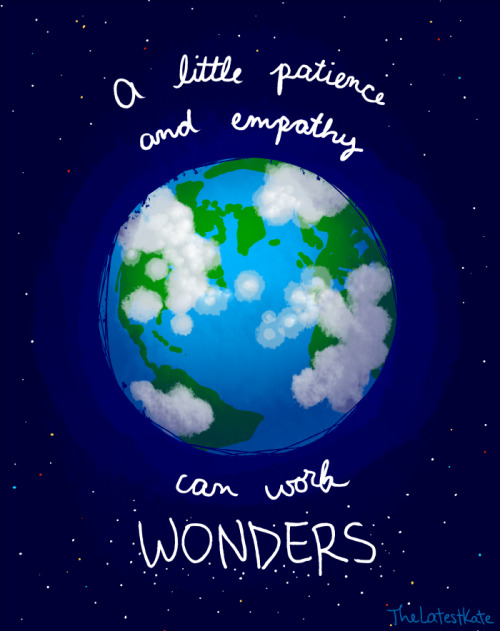 a little patience
and empathy
can work
WONDERS
TheLatestKate